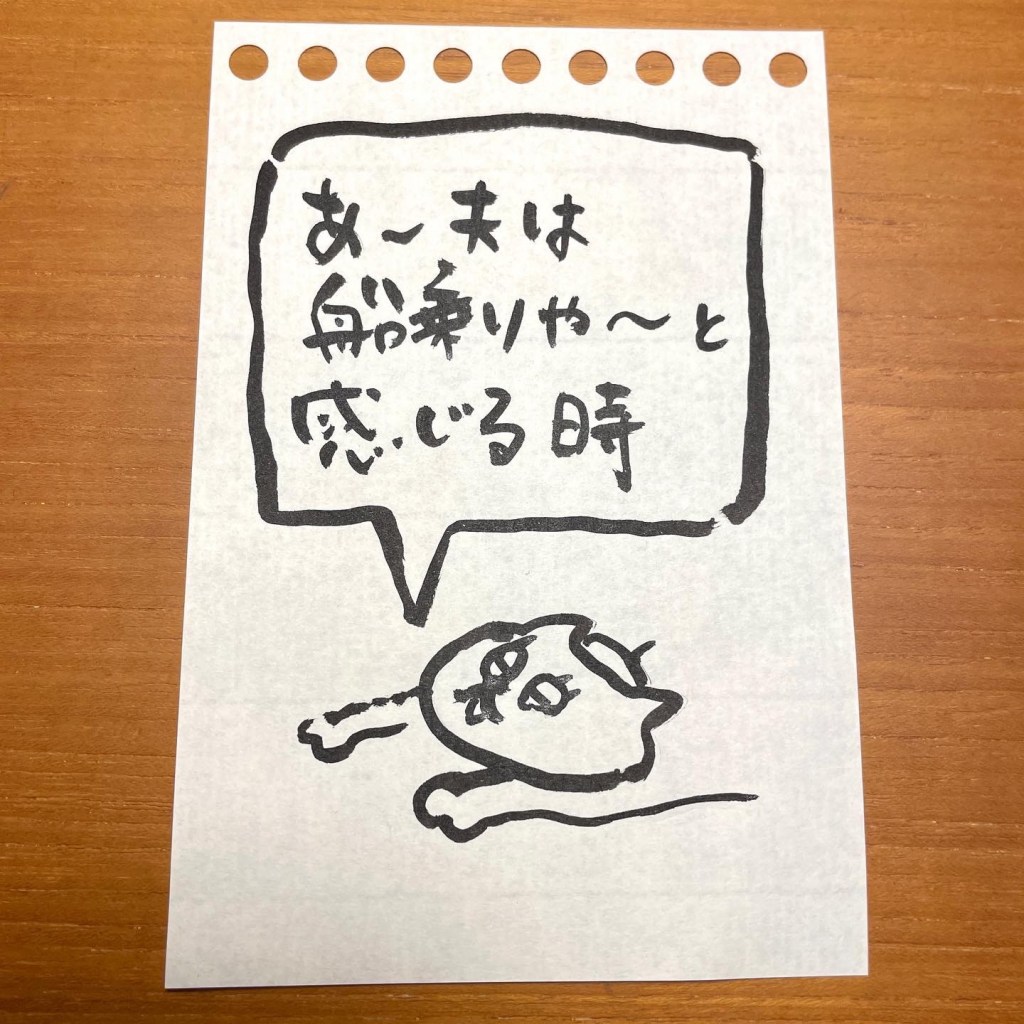 あ〜夫は
船乗りや〜と
感じる時